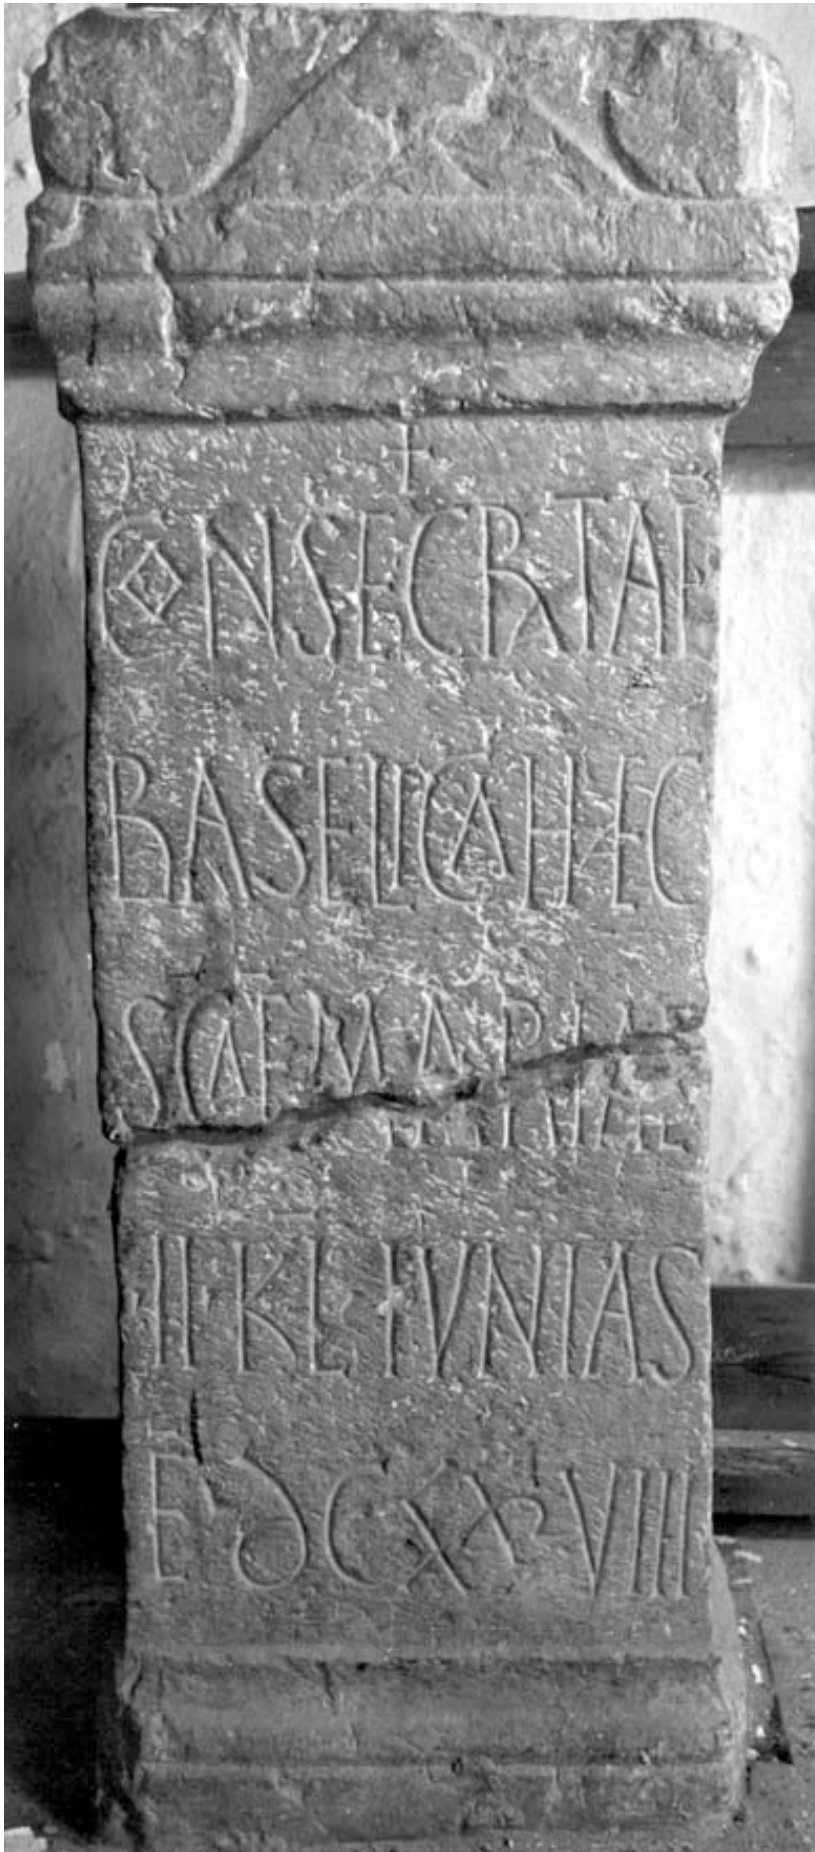 +
CONSECRATA E
BASELICA HAEC
SCAE MARIAE
II KL IVNIAS
E DCXXVIII